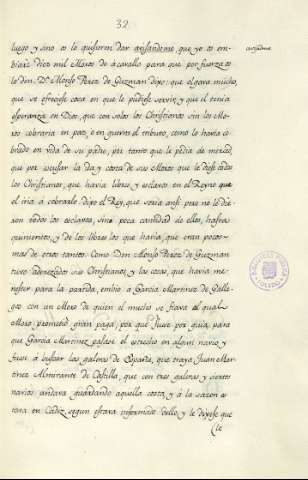 32.
luego y sino os lo quisieren dar avisandome, que yo os em-
biaré diez mil Moros de à cavallo para que por fuerza os
lo den. Dn. Alonso Perez de Guzman dixo: que olgava mucho,
que se ofreciese cosa en que le pudiese servir, y que el tenia
esperanza en Dios, que con solos los Christianos sin los Mo-
ros cobraria en paz, ò en guerra el tributo, como lo havia co-
brado en vida de su padre, por tanto que le pedia de merced,
que por escusar la ida y costa de sus Moros que le diese todos
los Christianos, que havia libres, y esclavos en el Reyno que
el iria à cobrarlo. dijo el Rey, que seria ansi pero no le die-
ron todos los esclavos, sino poca cantidad de ellos, hasta
quinientos, y de los libres los que havia, que eran pocos
mas de otros tantos. Como Don Alonso Perez de Guzman
tuvo aderezados sus Christianos y las cosas, que havia me-
nester para la partida, embio à Garcia Martinez de Galle-
gos con un Moro de quien el mucho se fiava al qual
Moro prometiò gran paga, por que fuese por guia, para
que Garcia Martinez pasase el estrecho en algun navio y
fuese à buscar las galeras de España, que traya Juan Mar-
tinez Almirante de Castilla, que con tres galeras y ciertos
navios andava guardando aquella costa, y à la sazon es-
tava en Cadiz segun estava informado dello, y le dijese que
le